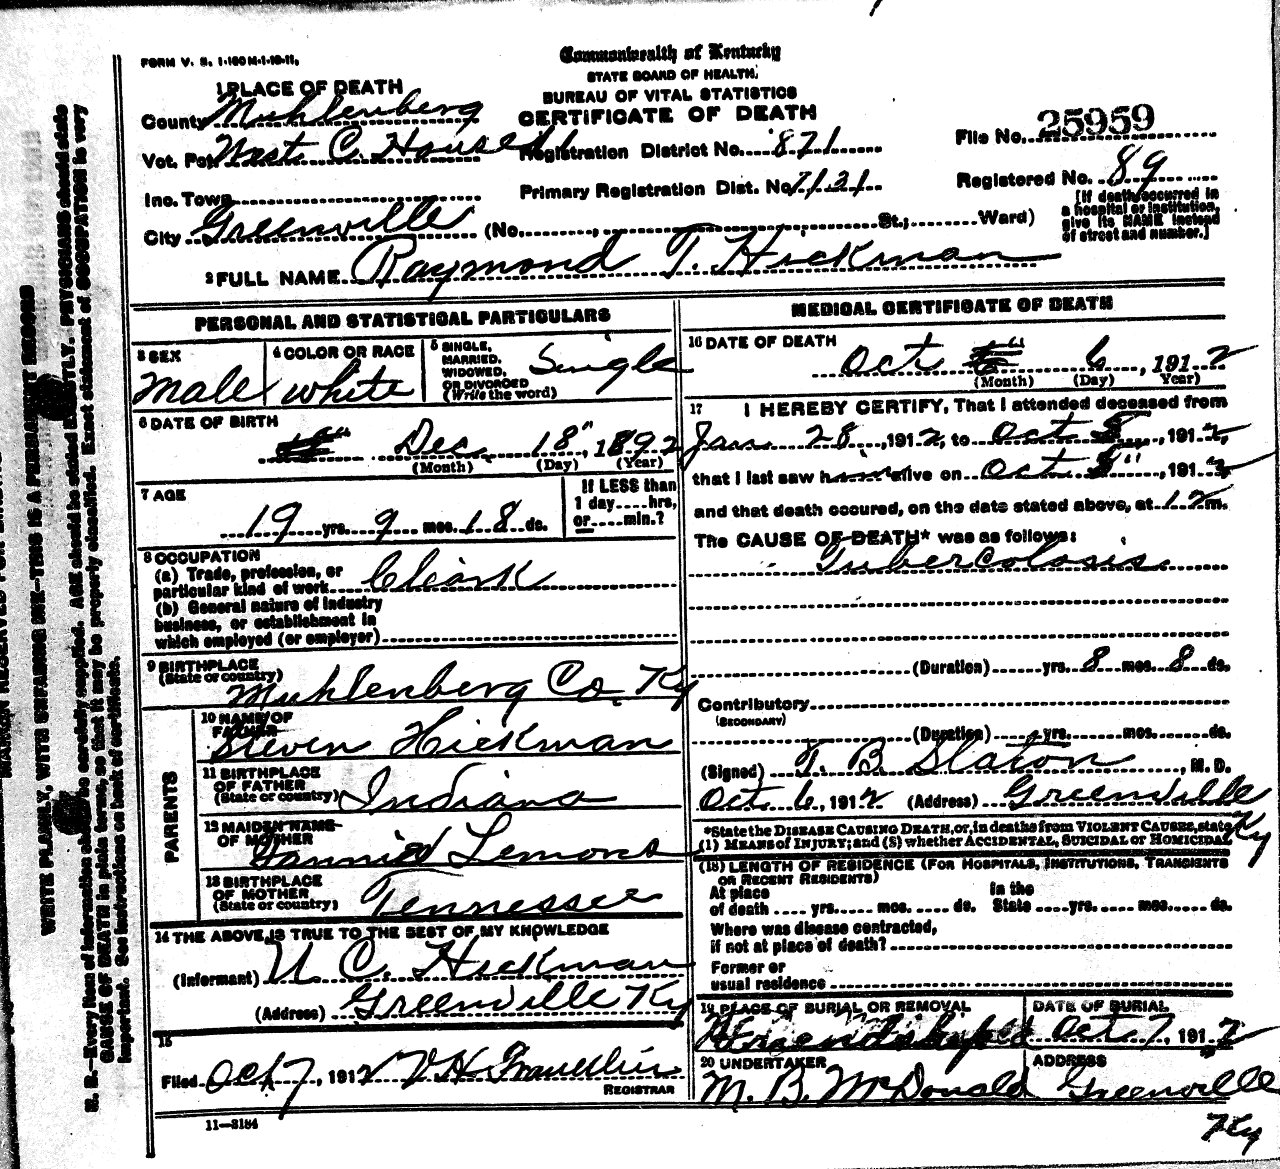 FORM V. S. 1-100 M-1-10-11.
Commonwealth of Kentucky
STATE BOARD OF HEALTH.
BUREAU OF VITAL STATISTICS
CERTIFICATE OF DEATH
1 PLACE OF DEATH
County Muhlenberg
Vot. Pct. West C. House # 1
Inc. Town
City Greenville (No. , St.; Ward)
Registration District No. 871
Primary Registration Dist. No. 7131
File No. 25959
Registered No. 89
[If death occurred in
a hospital or institution,
give its NAME instead
of street and number.]
2 FULL NAME Raymond T. Hickman
PERSONAL AND STATISTICAL PARTICULARS
3 SEX
Male
4 COLOR OR RACE
white
5 SINGLE,
MARRIED,
WIDOWED,
OR DIVORCED
(Write the word)
Single
6 DATE OF BIRTH
Dec 18", 1892
(Month) (Day) (Year)
7 AGE
19 yrs. 9 mos. 18 ds.
If LESS than
1 day hrs,
or min.?
8 OCCUPATION
(a) Trade, profession, or
particular kind of work Clark
(b) General nature of industry
business, or establishment in
which employed (or employer)
9 BIRTHPLACE
(State or country)
Muhlenberg Co. Ky
PARENTS
10 NAME OF
FATHER
Steven Hickman
11 BIRTHPLACE
OF FATHER
(State or country) Indiana
12 MAIDEN NAME
OF MOTHER
Lemons
13 BIRTHPLACE
OF MOTHER
(State or country) Tennessee
14 THE ABOVE IS TRUE TO THE BEST OF MY KNOWLEDGE
(Informant) U C. Hickman
(Address) Greenville Ky
15
Filed Oct 7, 1912 Franklin
REGISTRAR
11-3184
MEDICAL CERTIFICATE OF DEATH
16 DATE OF DEATH
Oct 6, 1912
(Month) (Day) Year)
17 I HEREBY CERTIFY, That I attended deceased from
Jan 28, 1912, to Oct 5, 1912,
that I last saw him alive on Oct 5", 1912
and that death occured, on the date stated above, at 12 m.
The CAUSE OF DEATH* was as follows:
Tubercolosis
(Duration) yrs. 8 mos. 8 ds.
Contributory
(SECONDARY)
(Duration) yrs. mos. ds.
(Signed) T. B Slaton, M. D.
Oct 6, 1912 (Address) Greenville
Ky
*State the DISEASE CAUSING DEATH, or, in deaths from VIOLENT CAUSES, state
(1) MEANS of INJURY; and (2) whether ACCIDENTAL, SUICIDAL or HOMICIDAL
(18) LENGTH OF RESIDENCE (FOR HOSPITALS, INSTITUTIONS, TRANSIENTS
OR RECENT RESIDENTS)
At place
of death yrs. mos. ds.
In the
State yrs. mos. ds.
Where was disease contracted,
if not at place of death?
Former or
usual residence
19 PLACE OF BURIAL OR REMOVAL
DATE OF BURIAL
Oct 7, 1912
20 UNDERTAKER
M. B. McDonald
ADDRESS
Greenville
Ky
MARGIN RESERVED FOR BINDING
WRITE PLAINLY, WITH UNFADING INK—THIS IS A PERMANENT RECORD
N. B.—Every item of information should be carefully supplied. AGE should be stated EXACTLY. PHYSICIANS should state
CAUSE OF DEATH in plain terms, so that it may be properly classified. Exact statement of OCCUPATION is very
important. See instructions on back of certificate.